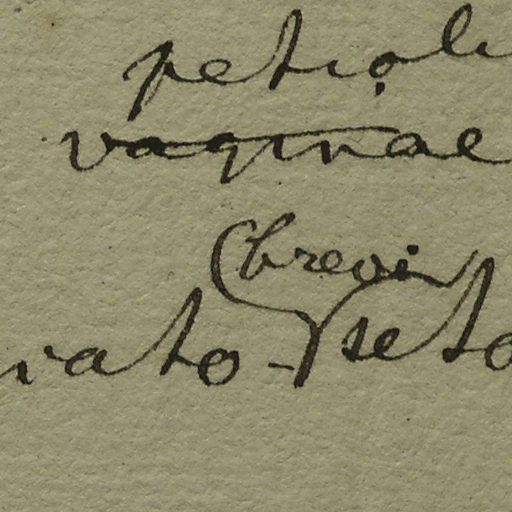 petioli
vaginae
(brevi
iato-seto